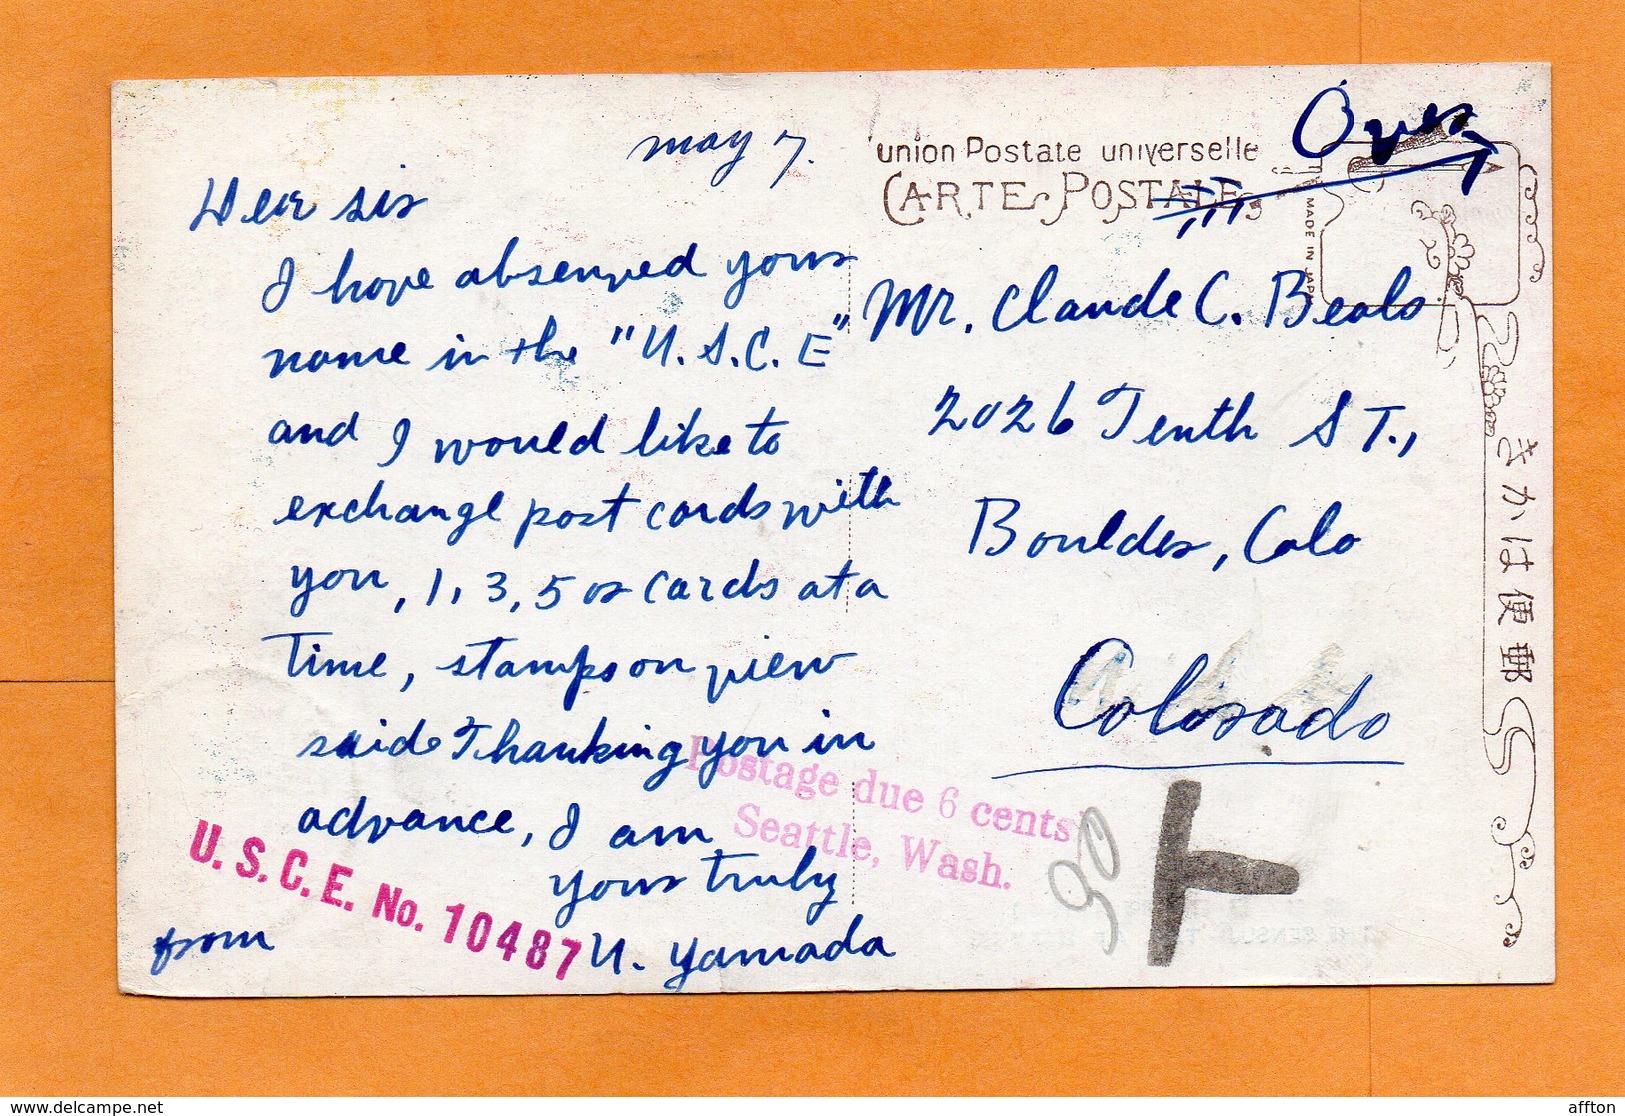 Over
may 7.
union Postale universelle
CARTE POSTALE
MADE IN JAPAN
Dear sis
I hove absenved yours
name in the "U.S.C.E"
and I would like to
exchange post cards with
you, 1, 3, 5 or cards at a
Time, stamps on view
side Thanking you in
advance, I am
yours truly
from U. Yamada
U.S.C.E. No. 10487
Mr. Claude C. Beals
2026 Tenth ST.,
Boulder, Colo
Colorado
Postage due 6 cents
Seattle, Wash.
T
きかは便郵
delcampe.net
affton